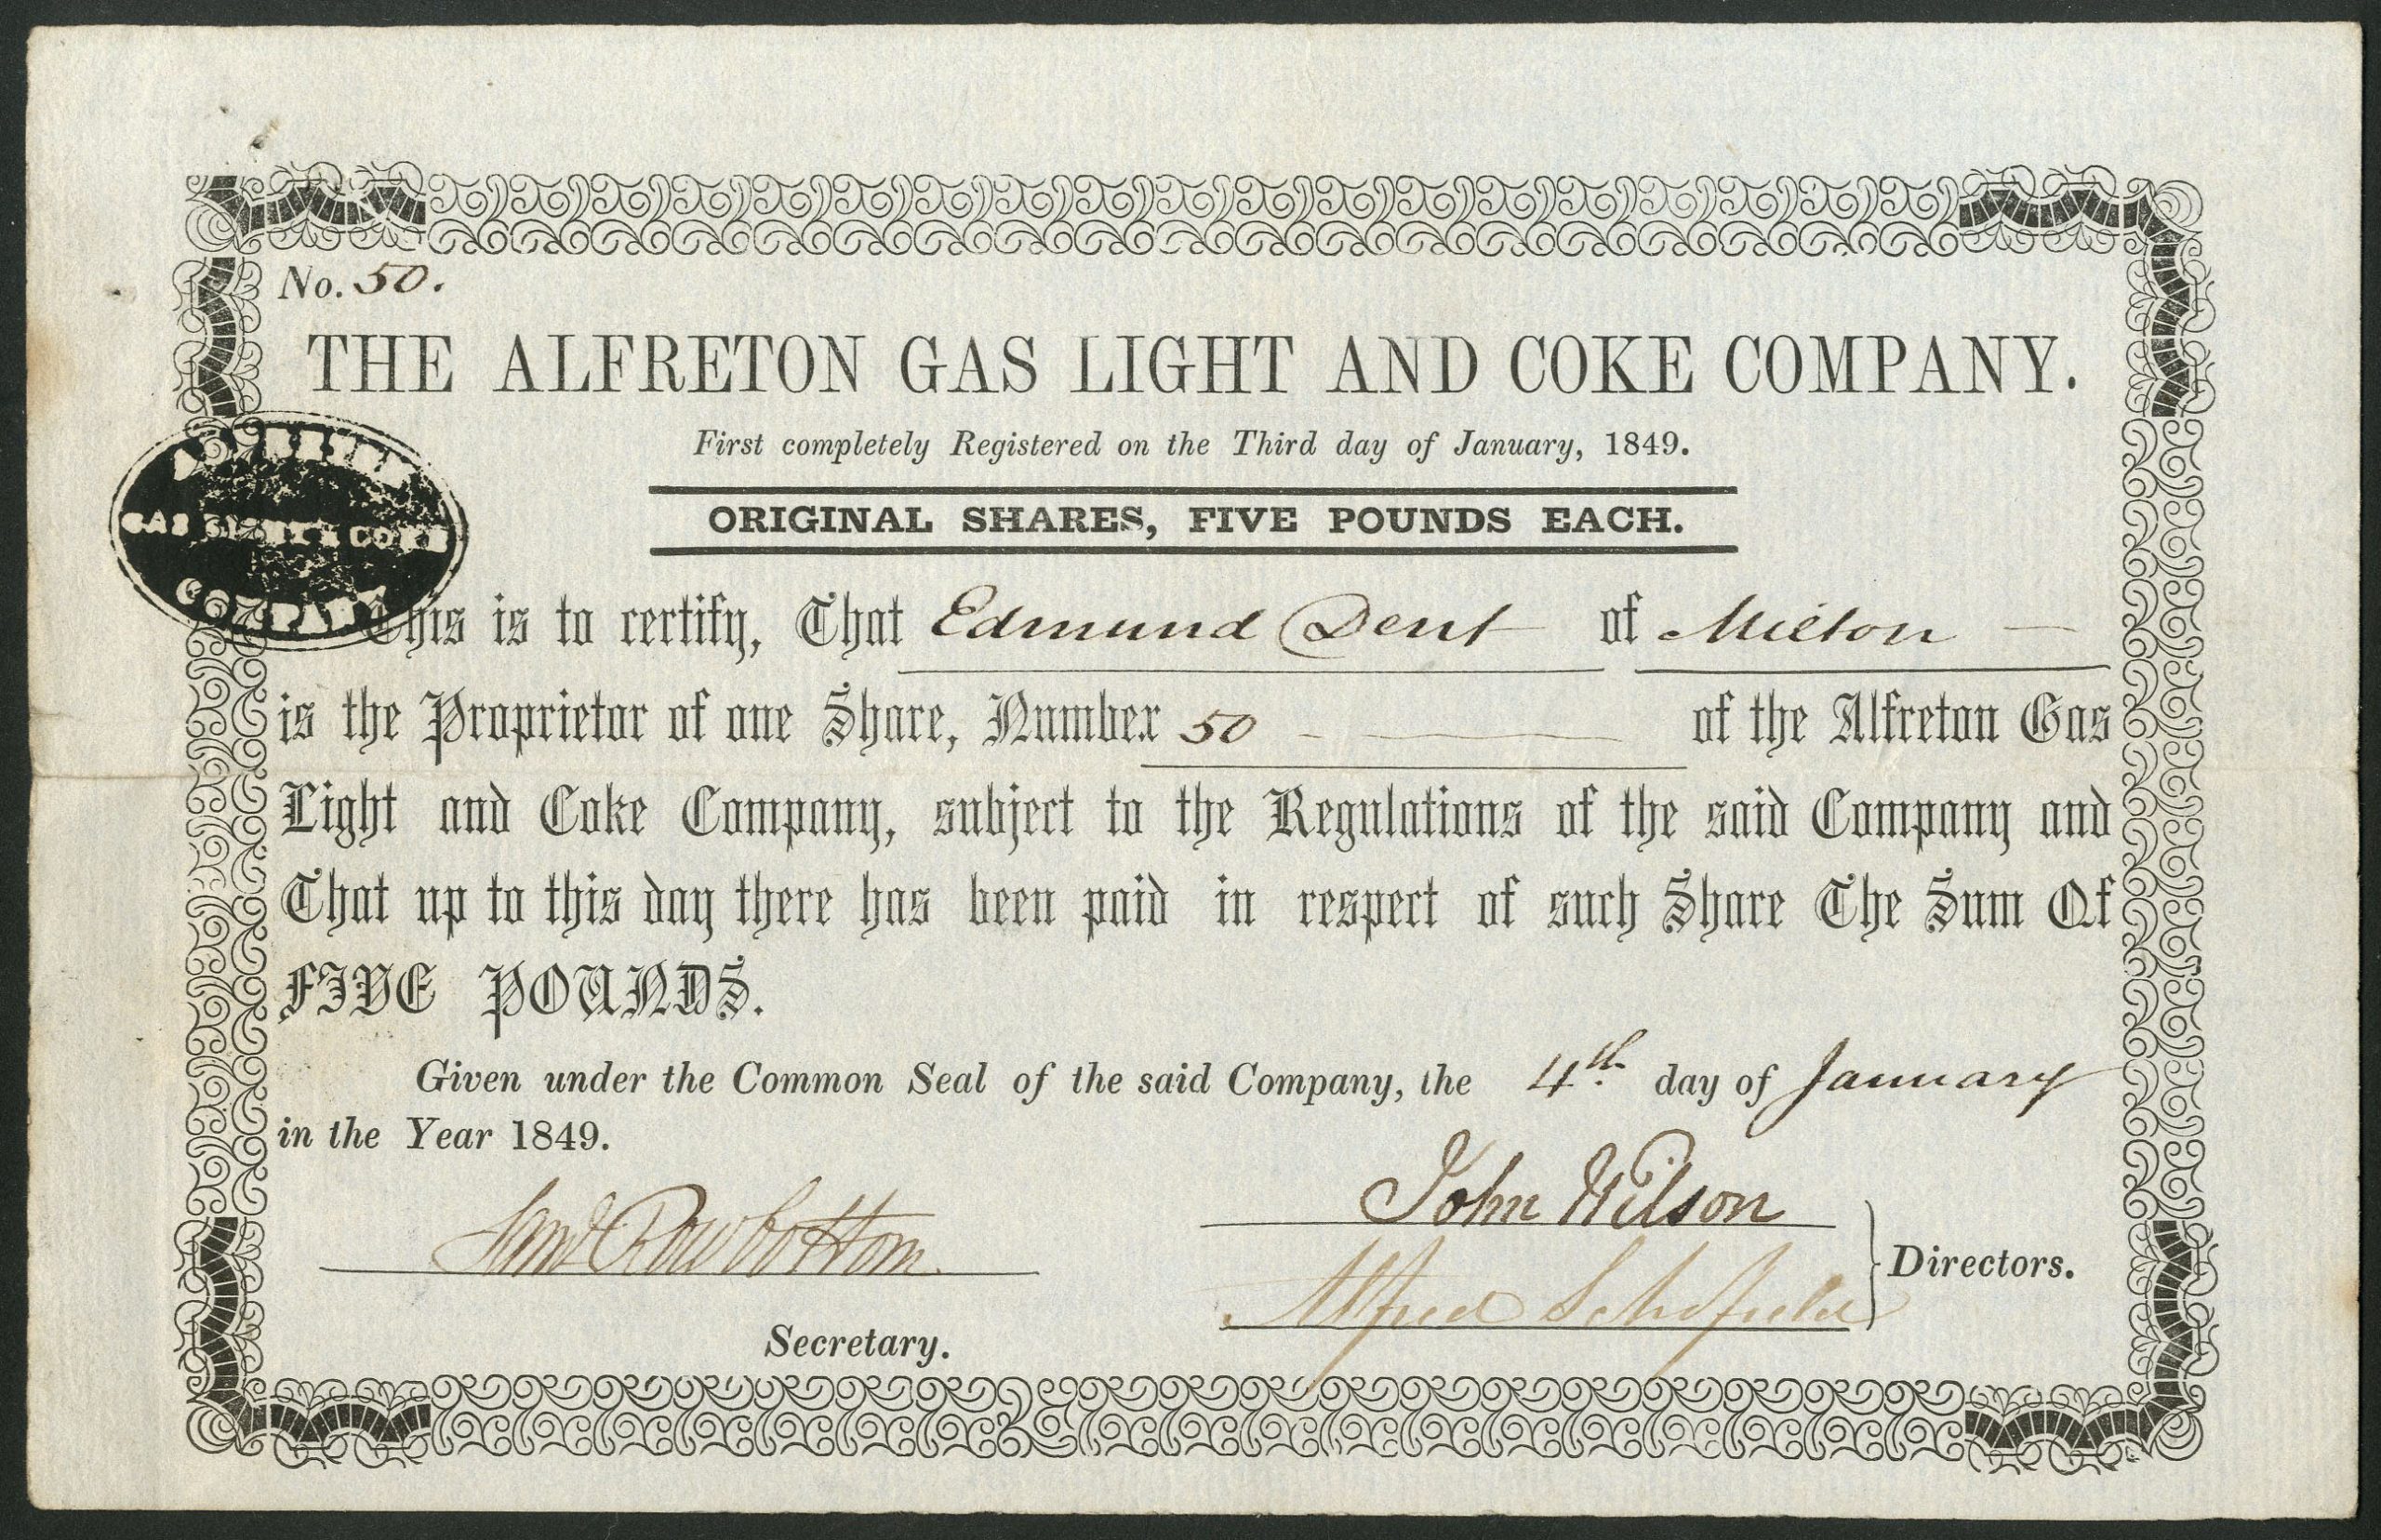 No. 50.
THE ALFRETON GAS LIGHT AND COKE COMPANY.
First completely Registered on the Third day of January, 1849.
ORIGINAL SHARES, FIVE POUNDS EACH.
GAS LIGHT & COKE
COMPANY
This is to certify, That Edmund Dent of Milton —
is the Proprietor of one Share, Number 50 of the Alfreton Gas
Light and Coke Company, subject to the Regulations of the said Company and
That up to this day there has been paid in respect of such Share The Sum Of
FIVE POUNDS.
Given under the Common Seal of the said Company, the 4th day of January
in the Year 1849.
John Wilson
Saml Rowbottom
Alfred Schofield
Directors.
Secretary.